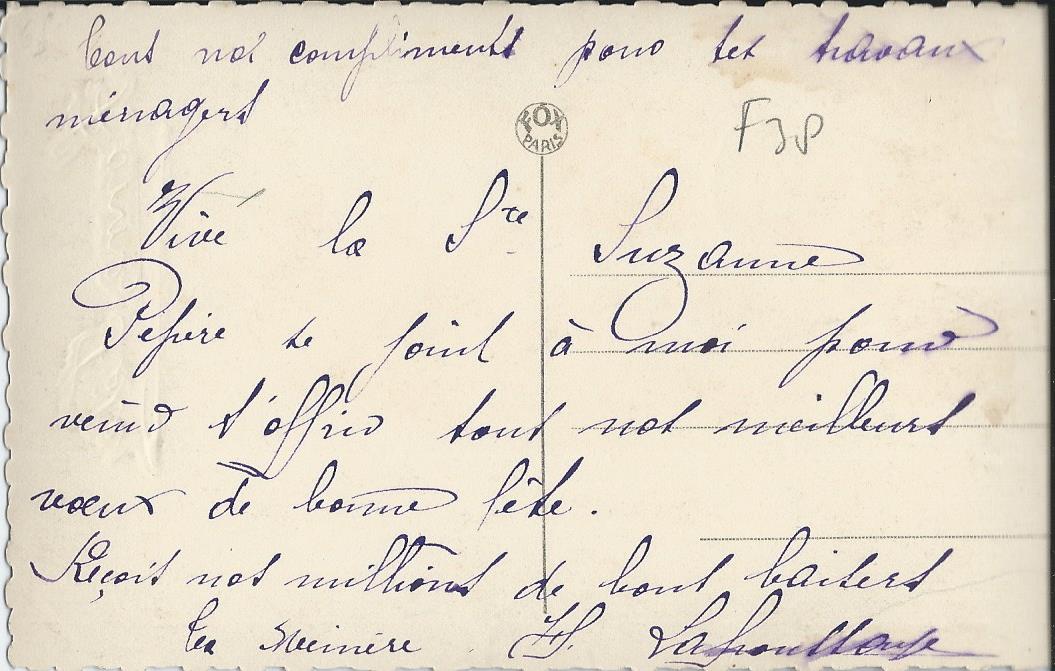 tous nos compliments pour tes travaux
ménagers
FOX
PARIS
F38
Vive la Ste Suzanne
Pépère se joint à moi pour
venir t'offrir tous nos meilleurs
vœux de bonne fête.
Reçoit nos millions de bons baisers
ta Mémère H.